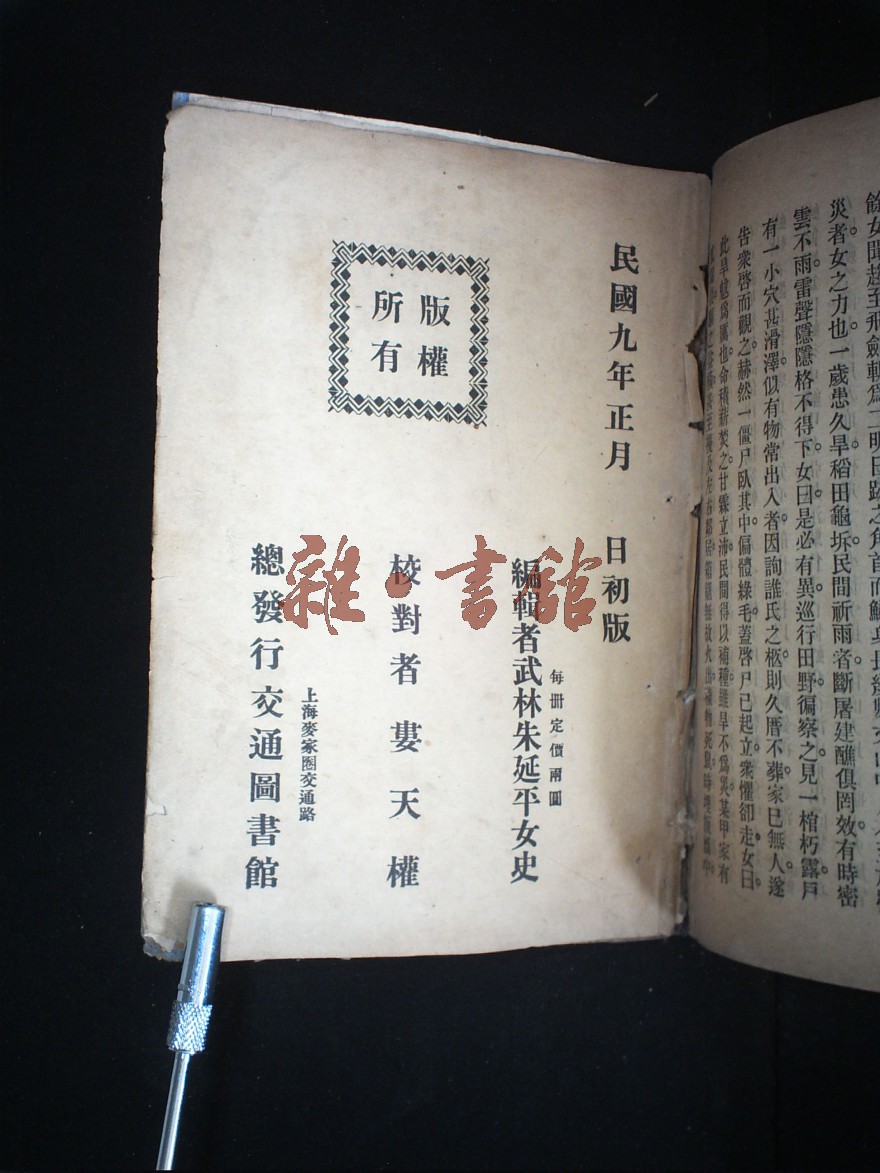 餘女聞趨至飛劍斬爲二明日跡之角首而
災者女之力也一歲患久旱稻田龜坼民間祈雨者斷屠建醮俱罔效有時密
雲不雨雷聲隱隱格不得下女曰是必有異巡行田野徧察之見一棺朽露戶
有一小穴甚滑澤似有物常出入者因詢誰氏之柩則久厝不葬家巳無人遂
告衆啓而觀之赫然一僵尸臥其中偏體綠毛蓋啓尸已起立衆懼卻走女曰
此旱魃爲厲也命積薪焚之甘霖立沛民間得以補種雖旱不爲災某甲家有
民國九年正月 日初版
每冊定價兩圓
編輯者武林朱延平女史
版權所有
校對者婁天權
上海麥家圈交通路
總發行交通圖書館
雜·書館